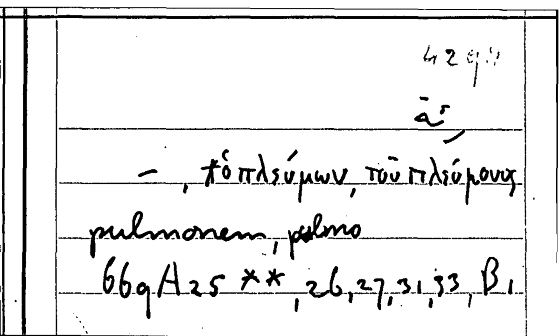 – , ὁ πλεύμων, τοῦ πλεύμονος
pulmonem, pulmo
669 A 25 **, 26, 27, 31, 33, B 1